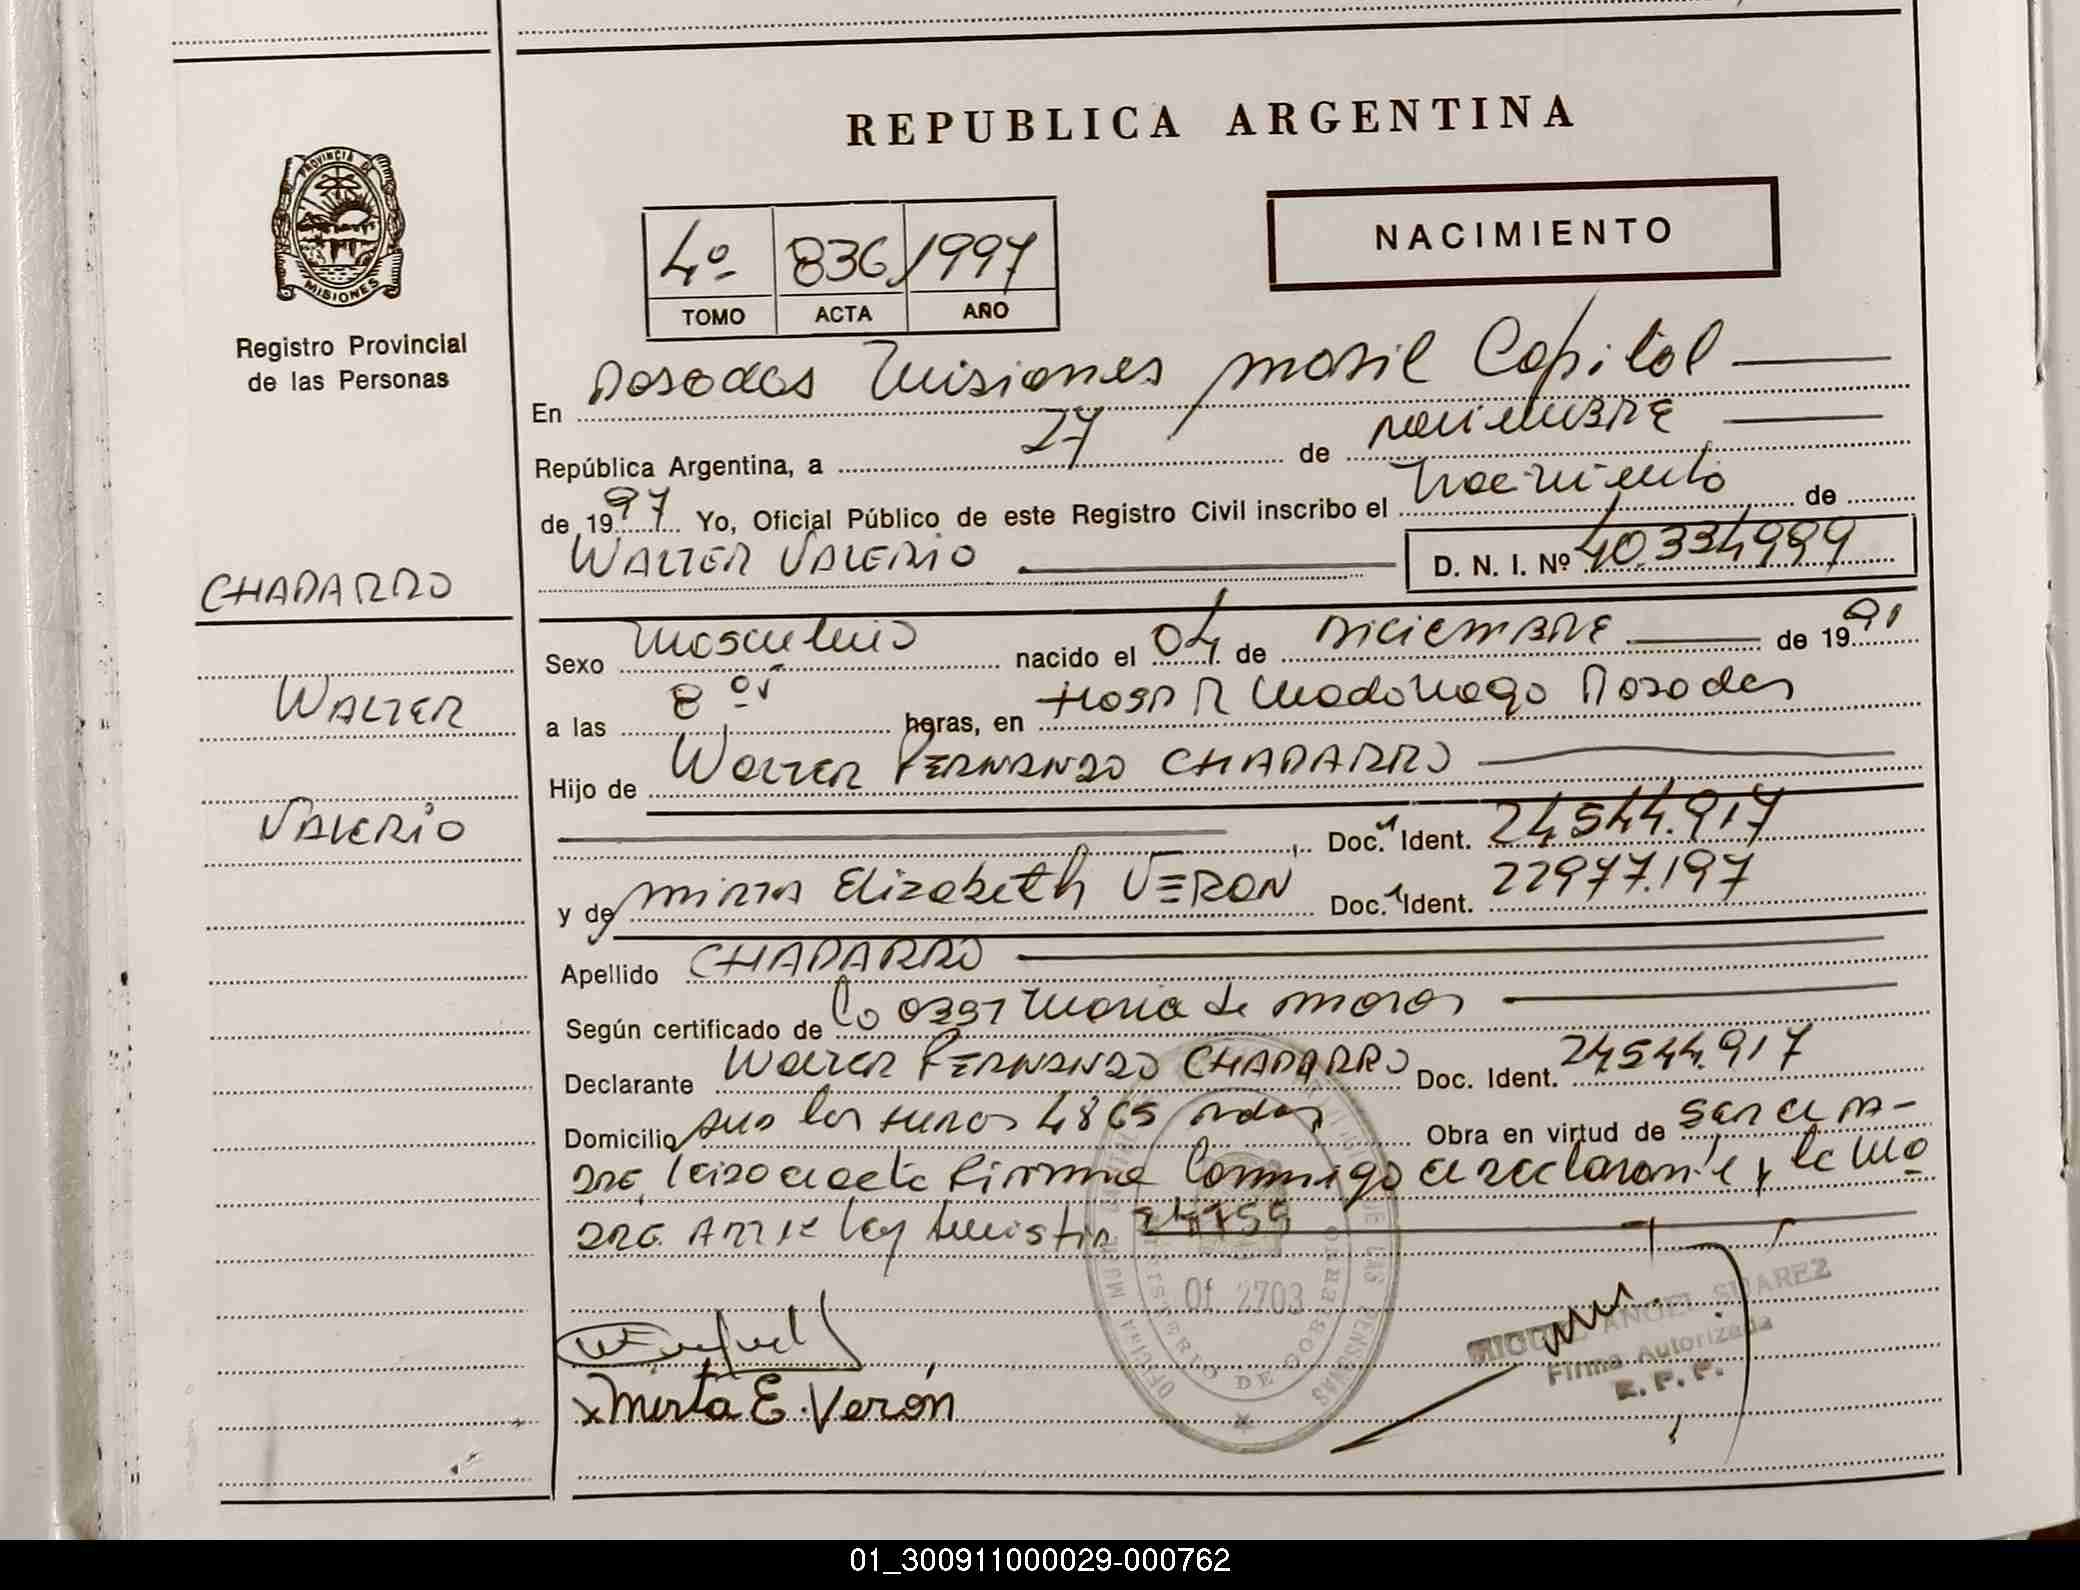 REPUBLICA ARGENTINA
PROVINCIA DE
MISIONES
Registro Provincial
de las Personas
NACIMIENTO
4º 836 1997
TOMO ACTA AÑO
En Posadas Misiones movil Capital
República Argentina, a 27 de noviembre
de 1997 Yo, Oficial Público de este Registro Civil inscribo el Nacimiento de
WALTER VALERIO D. N. I. Nº 40.334989
CHAPARRO
WALTER
VALERIO
Sexo Masculino nacido el 04 de Diciembre de 1991
a las 8 horas, en Hosp R Madariaga Posadas
Hijo de Walter FERNANDO CHAPARRO
Doc. Ident. 24544.917
y de Mirta Elizabeth VERON Doc. Ident. 22977.197
Apellido CHAPARRO
Según certificado de Maria de
Declarante Walter FERNANDO CHAPARRO Doc. Ident. 24544.917
Domicilio 4865 Obra en virtud de ser el PA-
DRE, Leida el acta firma Conmigo el declarante y la MA
DRE. Ley 24755
Of 2703
MINISTERIO DE GOBIERNO
MIGUEL ANGEL SUAREZ
Firma Autorizada
R. P. P.
x Mirta E. Verón
01_300911000029-000762